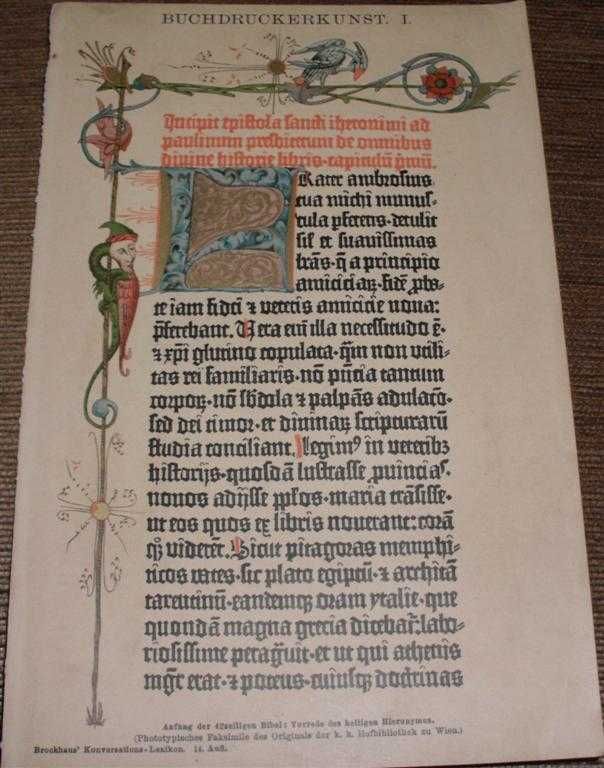 BUCHDRUCKERKUNST. I.
Incipit epistola sancti iheronimi ad
paulinum presbiterum de omnibus
divine historie libris·capitulū p̄mū.
FRater ambrosius
tua michi munus-
cula pferens·detulit
sil' et suavissimas
lrās·q̄ a principio
amicicias· fidē pba-
te iam fidei ⁊ veteris amicicie nova:
pferebant. Vera eni illa necessitudo ē·
⁊ xpi glutino copulata·qm̄ non utili-
tas rei familiaris·nō pn̄cia tantum
corporꝝ·nō sb̄dola ⁊ palpās adulaco·
sed dei timor·et divinaꝝ scripturarū
studia conciliant. Legimꝰ in veteribꝫ
historijs·quosdā lustrasse puincias·
novos adijsse pplos·maria trāsisse·
ut eos quos ex libris noverant: corā
qꝫ viderēt. Sicut pitagoras memphi-
ticos vates·sic plato egiptū·⁊ architā
tarentinū·eandemqꝫ oram ytalie·que
quondā magna grecia dicebat̄: labo-
riosissime peragvit·et ut qui athenis
mgr̄ erat·⁊ potens·cuiusqꝫ doctrinas
Anfang der 42zeiligen Bibel: Vorrede des heiligen Hieronymus.
(Phototypisches Faksimile des Originals der k. k. Hofbibliothek zu Wien.)
Brockhaus' Konversations-Lexikon. 14. Aufl.